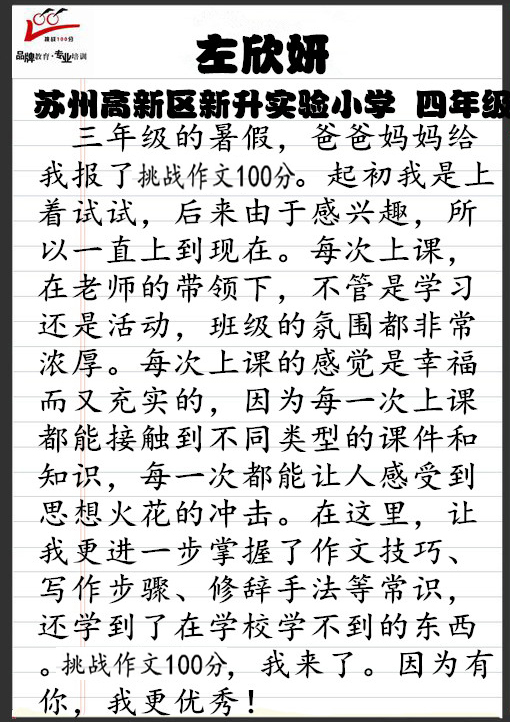 挑战100分
品牌教育·专业培训
左欣妍
苏州高新区新升实验小学 四年级
三年级的暑假，爸爸妈妈给
我报了挑战作文100分。起初我是上
着试试，后来由于感兴趣，所
以一直上到现在。每次上课，
在老师的带领下，不管是学习
还是活动，班级的氛围都非常
浓厚。每次上课的感觉是幸福
而又充实的，因为每一次上课
都能接触到不同类型的课件和
知识，每一次都能让人感受到
思想火花的冲击。在这里，让
我更进一步掌握了作文技巧、
写作步骤、修辞手法等常识，
还学到了在学校学不到的东西
。挑战作文100分，我来了。因为有
你，我更优秀！